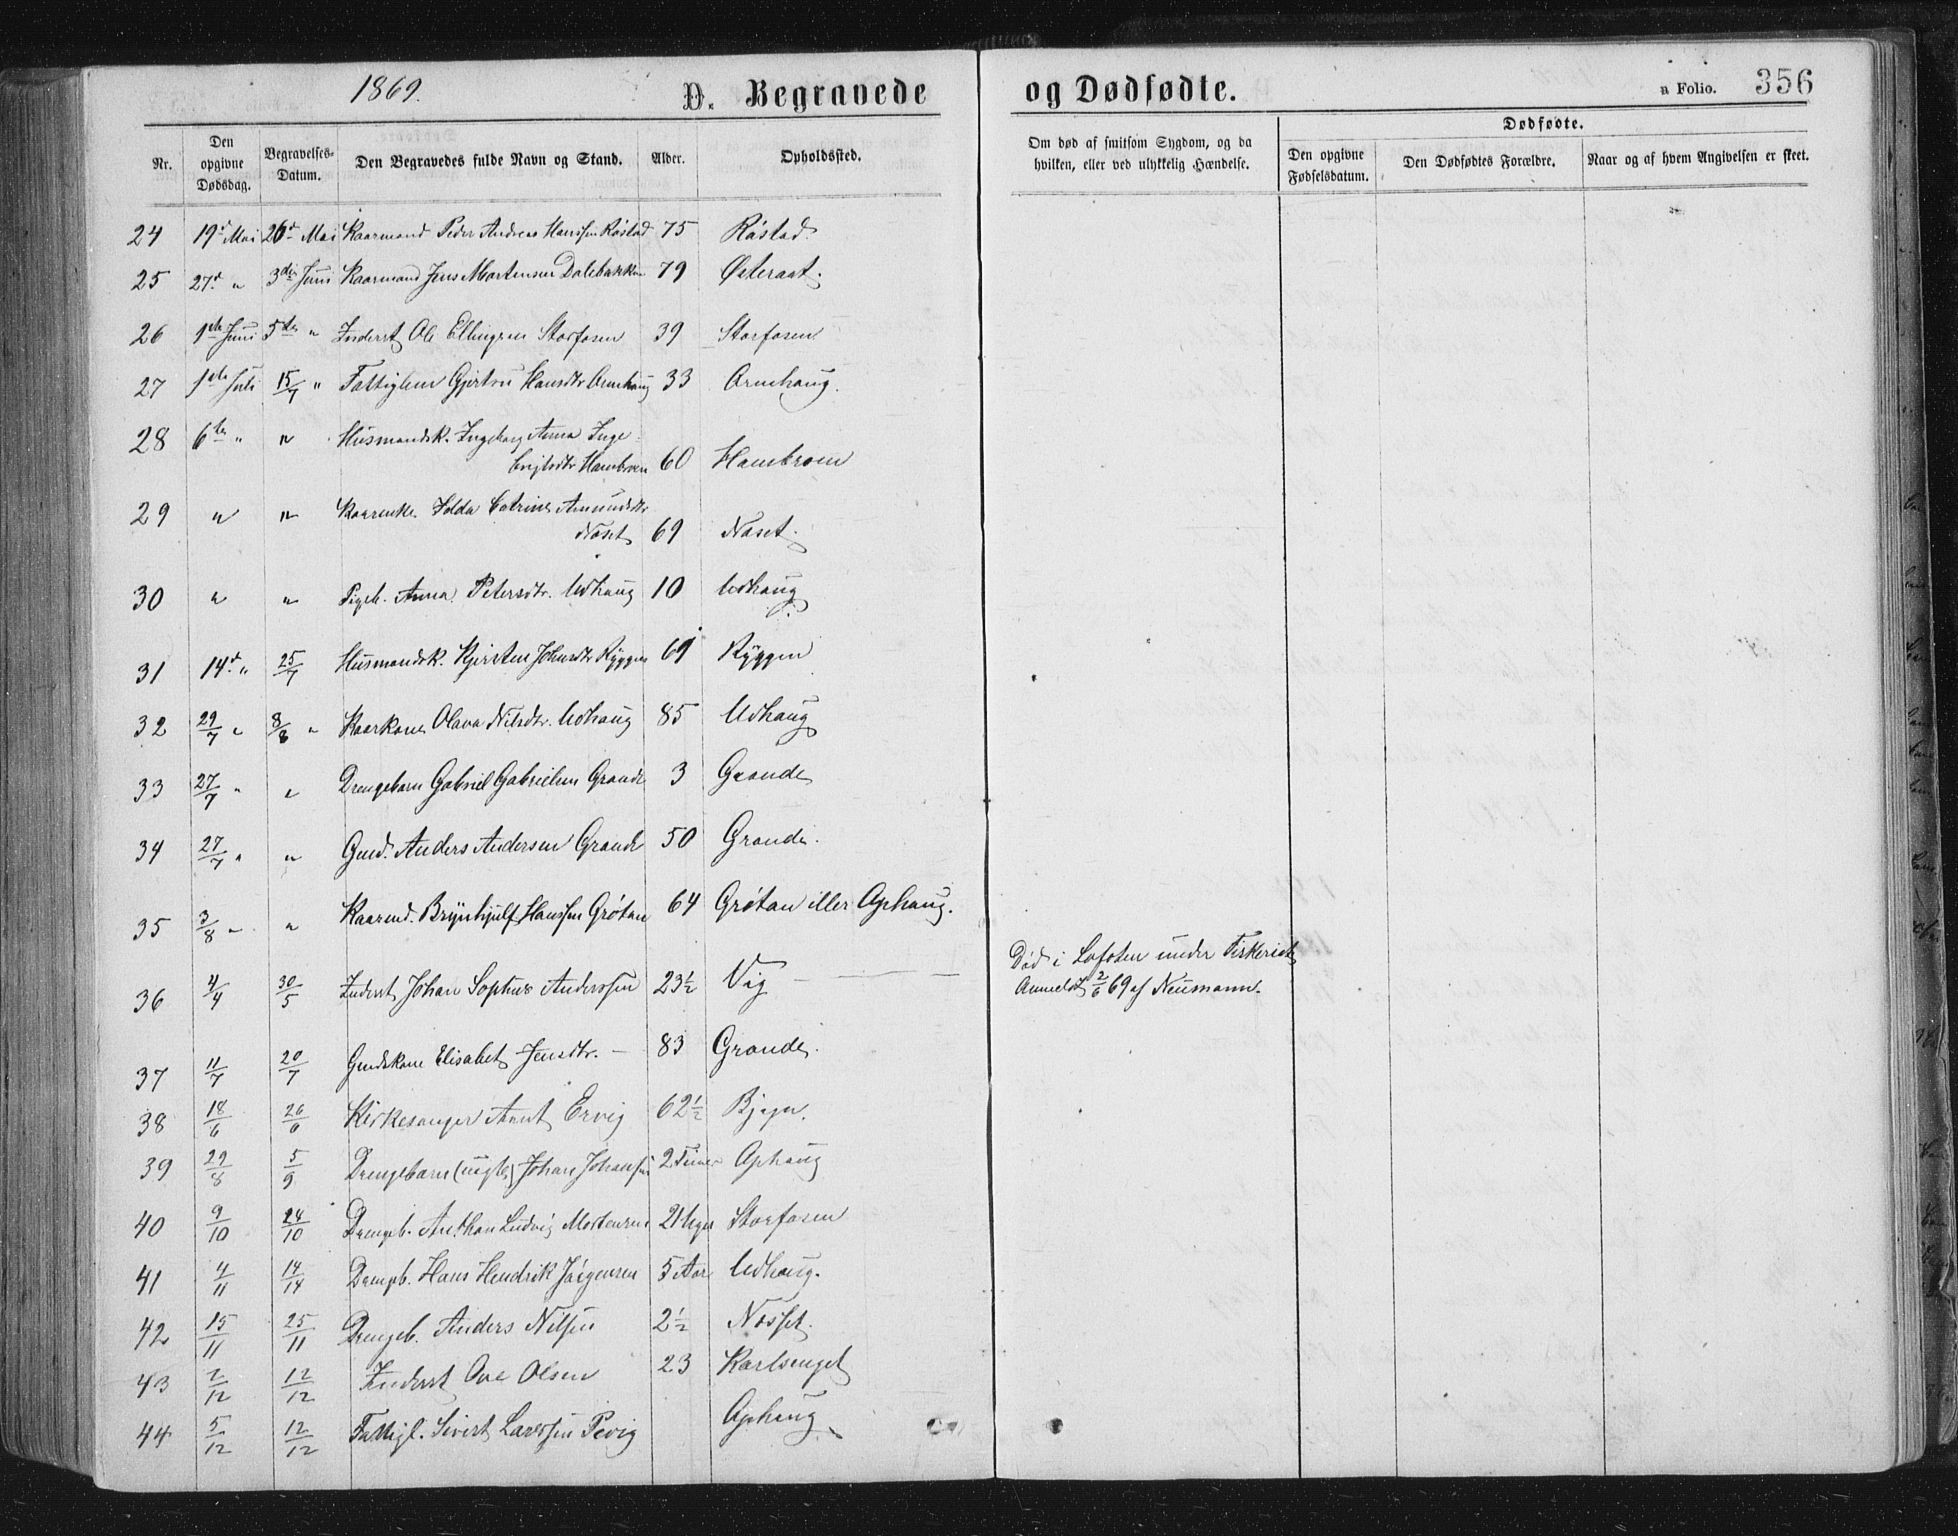 1869.
D. Begravede
og Dødfødte.
a Folio. 356
Nr.
Den opgivne Dødsdag.
Begravelses-Datum.
Den Begravedes fulde Navn og Stand.
Alder.
Opholdssted.
Om død af smitsom Sygdom, og da hvilken, eller ved ulykkelig Hændelse.
Dødfødte.
Den opgivne Fødselsdatum.
Den Dødfødtes Forældre.
Naar og af hvem Angivelsen er skeet.
24 19d Mai 26d Mai Kaarmand Peder Andreas Hanssen Røstad 75 Røstad.
25 27d " 3die Juni Kaarmand Jens Mortensen Dalebakken 79 Østeraat.
26 1ste Juni 5te " Inderst Ole Ellingsen Storfosen 39 Storfosen
27 1ste Juli 15/7 " Fattiglem Gjertru Hansdtr Arnehaug 33 Arnehaug.
28 6te " " Husmandsk. Ingeborg Anna Inge-
brigtsdtr Hambroen 60 Hambroen
29 " " Kaarenke Catrine Amundsdtr
Næset 69 Næset.
30 " " Pigeb. Anna Petersdtr. Udhaug 10 Udhaug.
31 14d " 25/7 Husmandsk. Kjersten Johnsdtr Ryggen 69 Ryggen
32 29/7 " 8/8 " Kaarkone Olava Nilsdtr. Udhaug 85 Udhaug
33 27/7 " " Drengebarn Gabriel Gabrielsen Grande 3 Grande
34 27/7 " " Gmd. Anders Andersen Grande 50 Grande.
35 3/8 " " Kaarmd. Brynhjulf Hanssen Grøtan 64 Grøtan eller Ophaug.
36 4/4 30/5 Inderst Johan Sophus Anderssen 23½ Vig — Død i Lofoten under Fiskeriet
Anmeldt 2/6 69 af Neumann.
37 11/7 20/7 Gmdskone Elisabet Jensdtr. — 83 Grande.
38 18/6 26/6 Kirkesanger Arnt Ervig 62½ Bjugn.
39 29/8 5/9 Drengebarn (uægte) Johan Johansen 2 Timer Ophaug
40 9/10 24/10 Drengeb. Anthon Ludvig Mortensen 2 Uger Storfosen
41 4/11 14/14 Drengeb. Hans Hendrik Jørgensen 5 Aar Udhaug.
42 15/11 25/11 Drengeb. Anders Nilsen 2½ Næsset.
43 2/12 12/12 Inderst Ove Olsen 23 Karlsenget
44 5/12 12/12 Fattigl. Sivert Larssen Pevig Ophaug